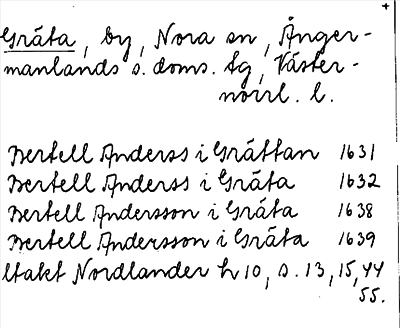 Gräta, by, Nora sn, Ånger-
manlands s. doms. tg, Väster-
norrl. l.
Bertell Anderss i Grättan 1631
Bertell Anderss i Gräta 1632
Bertell Andersson i Gräta 1638
Bertell Andersson i Gräta 1639
ltakt Nordlander h 10, s. 13, 15, 44
55.